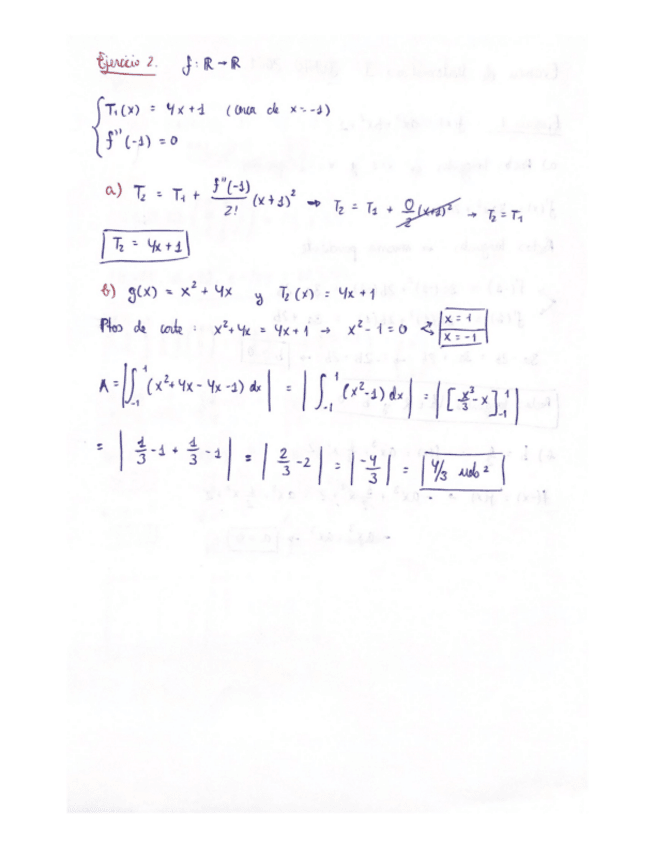 Ejercicio 2. f: R → R
T₁(x) = 4x+1 (cerca de x=-1)
f''(-1) = 0
a) T₂ = T₁ + f''(-1)/2! (x+1)² → T₂ = T₁ + 0/2 (x+1)² → T₂ = T₁
T₂ = 4x+1
b) g(x) = x² + 4x y T₂(x) = 4x+1
Ptos de corte: x²+4x = 4x+1 → x²-1=0 x=1 x=-1
A = |∫₋₁¹ (x²+4x-4x-1) dx| = |∫₋₁¹ (x²-1) dx| = |[x³/3 - x]₋₁¹|
= |1/3 -1 + 1/3 -1| = |2/3 -2| = |-4/3| = 4/3 uds²